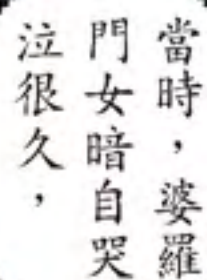 當時，婆羅
門女暗自哭
泣很久，